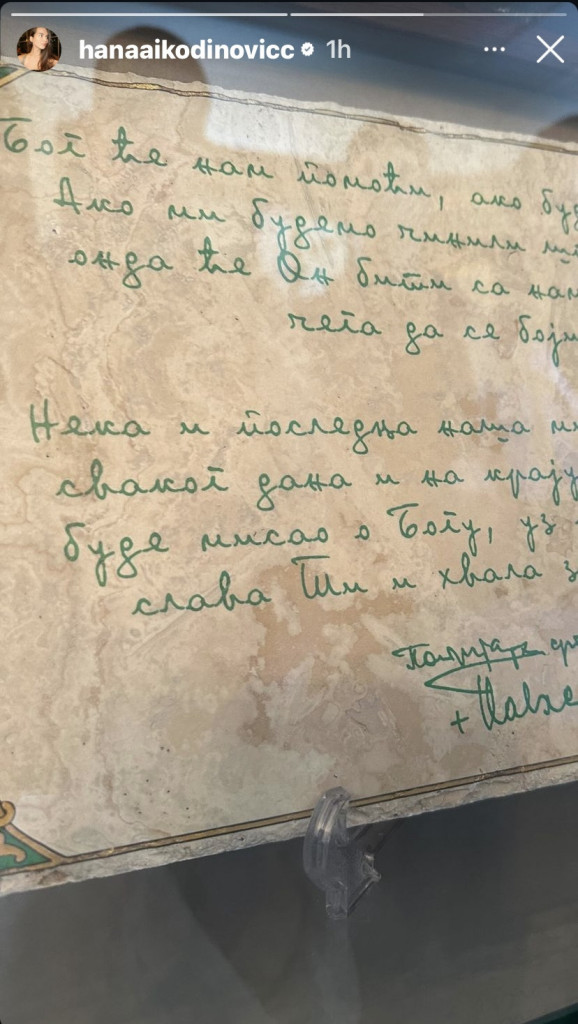 hanaaikodinovicc 1h
Бог ће нам помоћи, ако
Ако ми будемо чинили
онда ће Он бити са
чега да се
Нека и последња наша
сваког дана и на крају
буде мисао о Богу, уз
слава Ти и хвала
Патријарх
+ Павле